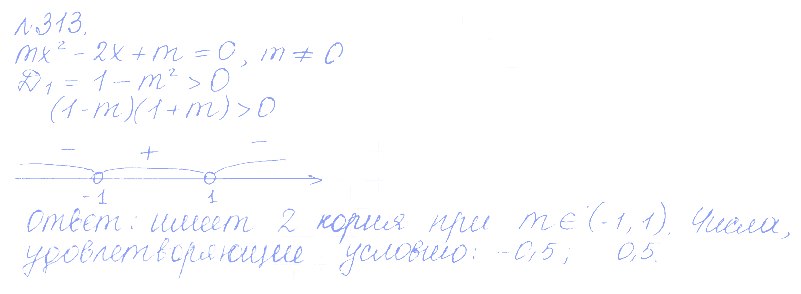 №313.
mx² - 2x + m = 0, m ≠ 0
D₁ = 1 - m² > 0
(1-m)(1+m) > 0
- + -
-1 1
Ответ: имеет 2 корня при m ∈ (-1, 1). Числа,
удовлетворяющие условию: -0,5; 0,5.